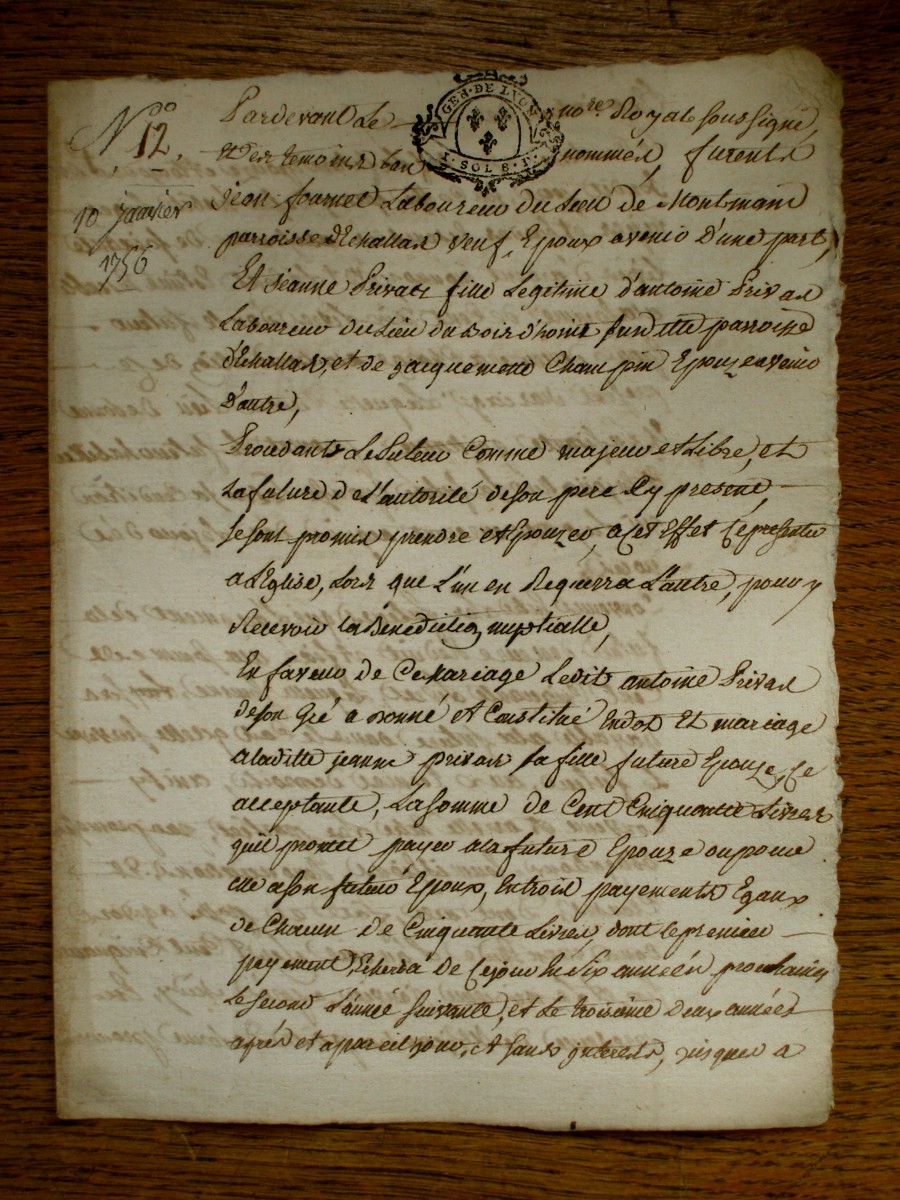 N.° 12.
10 janvier
1756
GEN. DE LYON
1. SOL 8. D.
Pardevant Le no.re Royal soussigné,
et des temoins bas nommés, furents
Jean fournel Laboureur du Lieu de Montmani
parroisse d'Echallas veuf, Epoux avenir D'une part,
Et Jeanne Privas fille Legitime d'antoine Privas
Laboureur du Lieu du Bois d'hoins susditte parroisse
d'Echallas, et de Jacquemette Champin Epouze avenir
D'autre,
Procedants Le futeur Comme majeur et Libre, et
La future de L'autorité de son pere Cy present,
se sont promis prendre et Epouzer, a Cet Effet Se presenter
a L'Eglise, Lors que L'un en Requerra L'autre, pour y
Recevoir La Benediction nuptialle,
En faveur de Ce Mariage Ledit antoine Privas
de son Gré a donné et Constitué En dot Et mariage
a laditte jeanne privas sa fille future Epouze, Ce
acceptante, La somme de Cent Cinquante Livres
qu'il promet payer a la future Epouze ou pour
elle a son futeur Epoux, En trois payements Egaux
de Chacun de Cinquante Livres, dont le premier
payement Echerra de Ce jour En Six années prochaines
le second L'année suivante, et Le troisieme Deux années
après et a pareil jour, et sans interests, jusques a